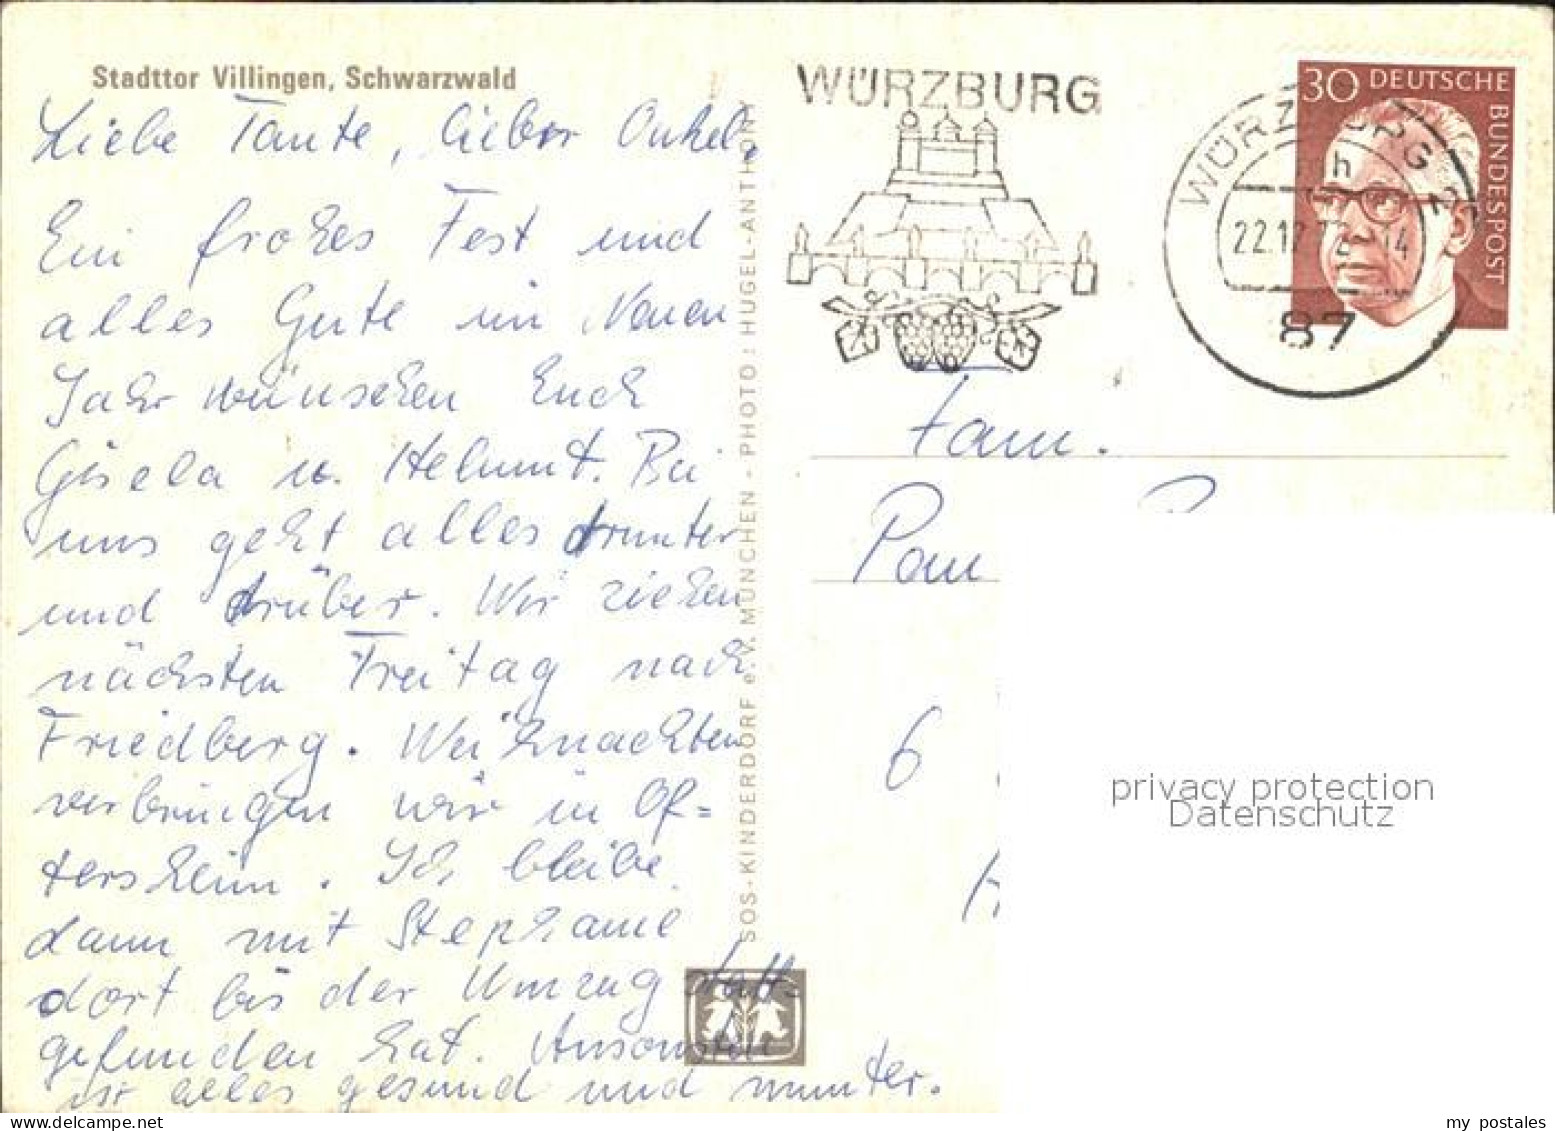 Stadttor Villingen, Schwarzwald
Liebe Tante, lieber Onkel,
Ein frohes Fest und
alles Gute im Neuen
Jahr wünschen Euch
Gisela u. Helmut. Bei
uns geht alles drunter
und drüber. Wir ziehen
nächsten Freitag nach
Friedberg. Weihnachten
verbringen wir in Of=
tersheim. Ich bleibe
dann mit Stephanie
dort bis der Umzug statt=
gefunden hat. Ansonsten
ist alles gesund und munter.
SOS-KINDERDORF e.V. MÜNCHEN - PHOTO: HUGEL-ANTHON
WÜRZBURG
WÜRZBURG 2
22.12.72
87
30 DEUTSCHE
BUNDESPOST
Fam.
6
privacy protection
Datenschutz
my postales